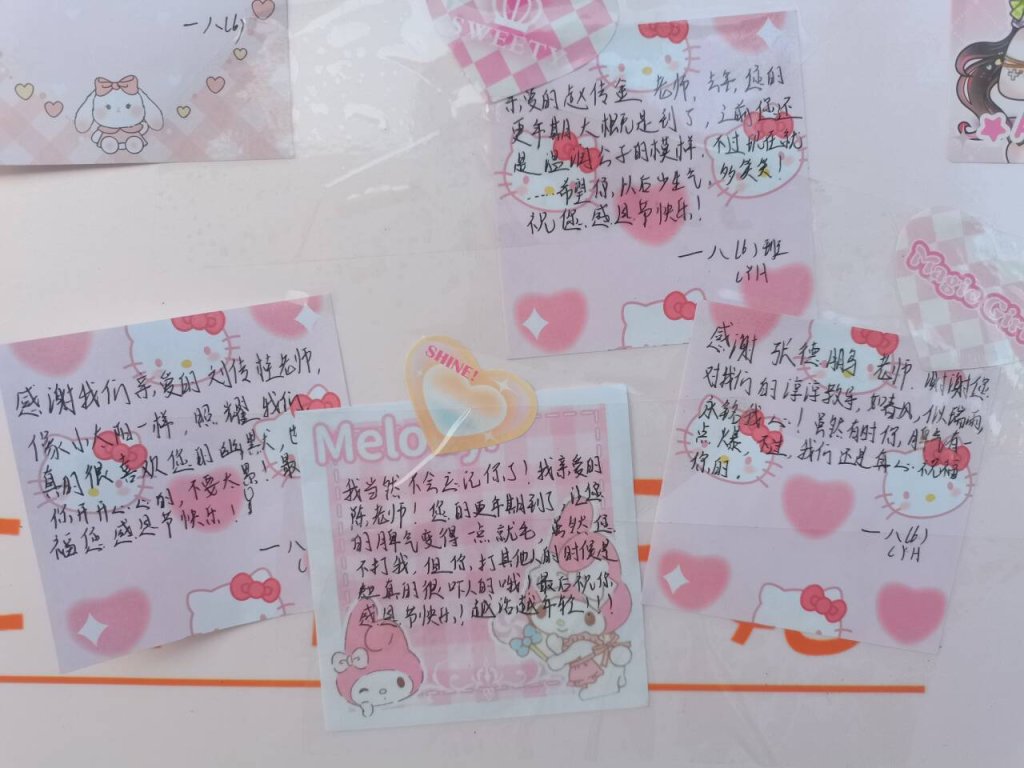 一八(6)
SWEETY
亲爱的赵传金老师,去年您的
更年期大概是到了,之前您还
是温润公子的模样,不过现在就
……希望你以后少生气,多笑笑!
祝您感恩节快乐!
一八(6)班
LYH
Magic Gir
感谢 张德鹏 老师,谢谢您
对我们的淳淳教导,如春风,似隔雨
永铃我心!虽然有时你脾气有一
点爆,不过,我们还是真心祝福
你的,
一八(6)
LYH
感谢我们亲爱的刘传桂老师,
像小太阳一样,照耀我们
真的很喜欢您的幽默,也
你开开心心的,不要太累!最
福您感恩节快乐!
一八
SHINE!
Melo
我当然不会忘记你了!我亲爱的
陈老师!您的更年期到了,让您
的脾气变得一点就毛,虽然您
不打我,但你打其他人的时候是
真的很吓人的哦!最后祝你
感恩节快乐!越活越年轻!!!